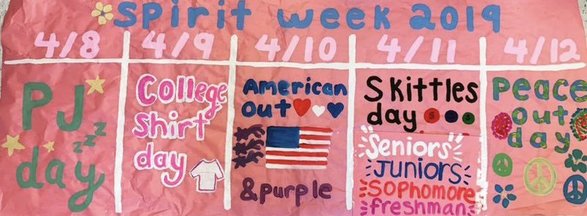 Spirit week 2019
4/8
4/9
4/10
4/11
4/12
PJ
day
zzz
College
Shirt
day
American
out
& purple
Skittles
day
S
Seniors
Juniors
Sophomore
freshman
Peace
out
day